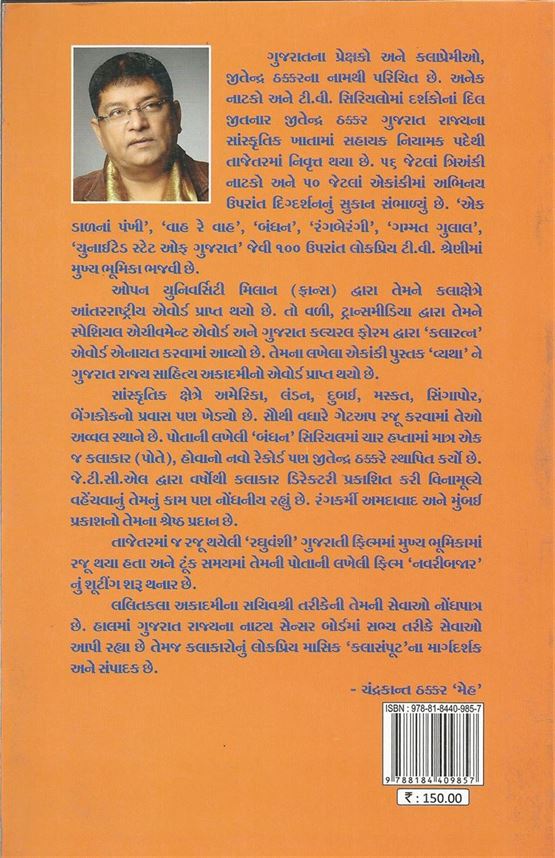 ગુજરાતના પ્રેક્ષકો અને કલાપ્રેમીઓ,
જીતેન્દ્ર ઠક્કરના નામથી પરિચિત છે. અનેક
નાટકો અને ટી.વી. સિરિયલોમાં દર્શકોનાં દિલ
જીતનાર જીતેન્દ્ર ઠક્કર ગુજરાત રાજ્યના
સાંસ્કૃતિક ખાતામાં સહાયક નિયામક પદેથી
તાજેતરમાં નિવૃત્ત થયા છે. ૫૬ જેટલાં ત્રિઅંકી
નાટકો અને ૫૦ જેટલાં એકાંકીમાં અભિનય
ઉપરાંત દિગ્દર્શનનું સુકાન સંભાળ્યું છે. 'એક
ડાળનાં પંખી', 'વાહ રે વાહ', 'બંધન', 'રંગબેરંગી', 'ગમ્મત ગુલાલ',
'યુનાઈટેડ સ્ટેટ ઓફ ગુજરાત' જેવી ૧૦૦ ઉપરાંત લોકપ્રિય ટી.વી. શ્રેણીમાં
મુખ્ય ભૂમિકા ભજવી છે.
ઓપન યુનિવર્સિટી મિલાન (ફ્રાન્સ) દ્વારા તેમને કલાક્ષેત્રે
આંતરરાષ્ટ્રીય એવોર્ડ પ્રાપ્ત થયો છે. તો વળી, ટ્રાન્સમીડિયા દ્વારા તેમને
સ્પેશિયલ એચીવમેન્ટ એવોર્ડ અને ગુજરાત કલ્ચરલ ફોરમ દ્વારા 'કલારત્ન'
એવોર્ડ એનાયત કરવામાં આવ્યો છે. તેમના લખેલા એકાંકી પુસ્તક 'વ્યથા' ને
ગુજરાત રાજ્ય સાહિત્ય અકાદમીનો એવોર્ડ પ્રાપ્ત થયો છે.
સાંસ્કૃતિક ક્ષેત્રે અમેરિકા, લંડન, દુબઈ, મસ્કત, સિંગાપોર,
બેંગકોકનો પ્રવાસ પણ ખેડ્યો છે. સૌથી વધારે ગેટઅપ રજૂ કરવામાં તેઓ
અવ્વલ સ્થાને છે. પોતાની લખેલી 'બંધન' સિરિયલમાં ચાર હપ્તામાં માત્ર એક
જ કલાકાર (પોતે), હોવાનો નવો રેકોર્ડ પણ જીતેન્દ્ર ઠક્કરે સ્થાપિત કર્યો છે.
જે.ટી.સી.એલ દ્વારા વર્ષોથી કલાકાર ડિરેક્ટરી પ્રકાશિત કરી વિનામૂલ્યે
વહેંચવાનું તેમનું કામ પણ નોંધનીય રહ્યું છે. રંગકર્મી અમદાવાદ અને મુંબઈ
પ્રકાશનો તેમના શ્રેષ્ઠ પ્રદાન છે.
તાજેતરમાં જ રજૂ થયેલી 'રઘુવંશી' ગુજરાતી ફિલ્મમાં મુખ્ય ભૂમિકામાં
રજૂ થયા હતા અને ટૂંક સમયમાં તેમની પોતાની લખેલી ફિલ્મ 'નવરીબજાર'
નું શૂટીંગ શરૂ થનાર છે.
લલિતકલા અકાદમીના સચિવશ્રી તરીકેની તેમની સેવાઓ નોંધપાત્ર
છે. હાલમાં ગુજરાત રાજ્યના નાટ્ય સેન્સર બોર્ડમાં સભ્ય તરીકે સેવાઓ
આપી રહ્યા છે તેમજ કલાકારોનું લોકપ્રિય માસિક 'કલાસંપૂટ'ના માર્ગદર્શક
અને સંપાદક છે.
- ચંદ્રકાન્ત ઠક્કર 'મેહ'
ISBN : 978-81-8440-985-7
9 788184 409857
₹ : 150.00